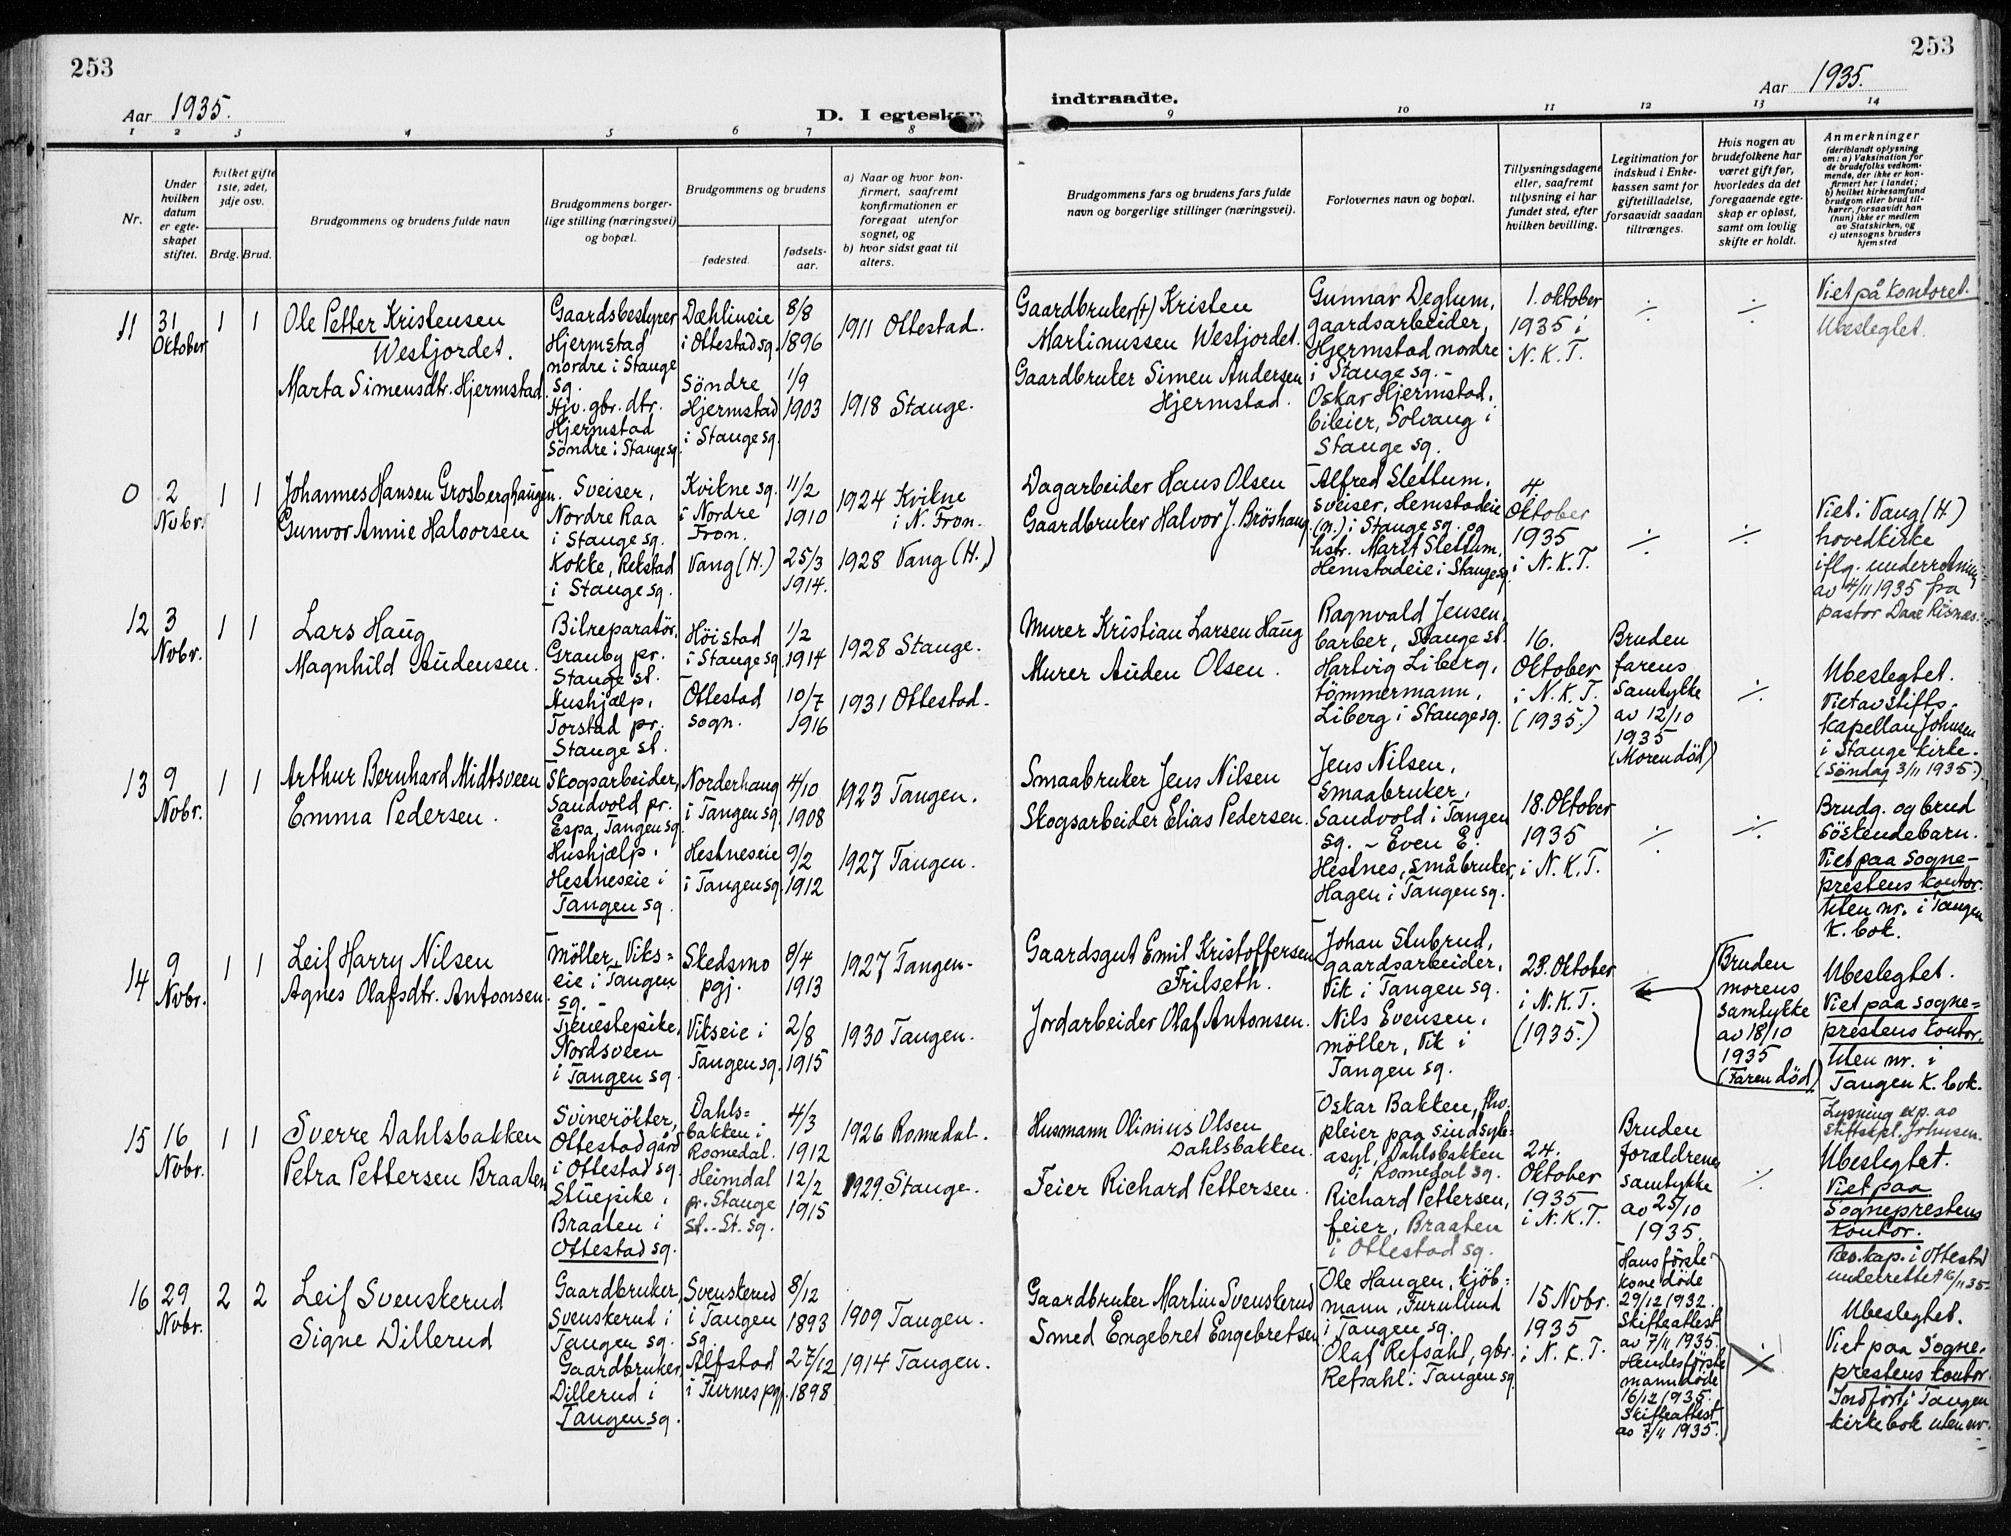 253
Aar 1935.
D. Iegteskap
1 2 3 4 5 6 7 8
Nr.
Under hvilken datum er egteskapet stiftet.
hvilket gifte 1ste, 2det, 3dje osv.
Brdg. Brud.
Brudgommens og brudens fulde navn
Brudgommens borgerlige stilling (næringsvei) og bopæl.
Brudgommens og brudens
fødested.
fødselsaar.
a) Naar og hvor konfirmert, saafremt konfirmationen er foregaat utenfor sognet, og
b) hvor sidst gaat til alters.
11
31 Oktober
1 1
Ole Petter Kristensen
Westjordet.
Marta Simensdtr. Hjermstad
Gaardsbestyrer
Hjermstad
nordre i Stange
sq.
Hjv. gbr. dtr.
Hjermstad
Söndre i Stange sq.
Dæhlineie
i Ottestad sq.
Söndre
Hjermstad
i Stange sq.
8/8
1896
1/9
1903
1911 Ottestad.
1918 Stange.
0
2 Nvbr.
1 1
Johannes Hansen Grosberghaugen.
Gunvor Annie Halvorsen
Sveiser,
Nordre Raa
i Stange sq.
Kokke, Rekstad
i Stange sq.
Kvikne sq.
i Nordre
Fron.
Vang (H.)
11/2
1910
25/3
1914.
1924 Kvikne
i N. Fron.
1928 Vang (H.)
12
3 Nvbr.
1 1
Lars Haug
Magnhild Audensen.
Bilreparatør,
Granby pr.
Stange st.
Hushjælp,
Torstad pr.
Stange st.
Höistad
i Stange sq
Ottestad
sogn.
1/2
1914
10/7
1916
1928 Stange.
1931 Ottestad.
13
9 Nvbr.
1 1
Arthur Bernhard Midtsveen
Emma Pedersen.
Skogsarbeider,
Sandvold pr.
Espa, Tangen sq.
Hushjælp,
Hestneseie i
Tangen sq.
Norderhaug
i Tangen sq.
Hestneseie
i Tangen sq.
4/10
1908
9/2
1912
1923 Tangen.
1927 Tangen.
14
9 Nvbr.
1 1
Leif Harry Nilsen
Agnes Olafsdtr. Antonsen.
Möller, Viks=
eie i Tangen
sq. -
Tjenestepike,
Nordsveen
i Tangen sq.
Skedsmo
pgj.
Vikseie i
Tangen sq.
8/4
1913
2/8
1915
1927 Tangen.
1930 Tangen.
15
16 Nvbr.
1 1
Sverre Dahlsbakken
Petra Pettersen Braaten
Svinerökter,
Ottestad gård
i Ottestad sq.
Stuepike,
Braaten i
Ottestad sq.
Dahls=
bakken i
Romedal.
Heimdal
pr. Stange
st. - St. sq.
4/3
1912
12/2
1915
1926 Romedal.
1929. Stange.
16
29 Nvbr.
2 2
Leif Svenskerud
Signe Dillerud
Gaardbruker,
Svenskerud i
Tangen sq.
Gaardbruker,
Dillerud i
Tangen sq.
Svenskerud
i Tangen
sq.
Alfstad
i Furnes pgj.
8/12
1893
27/12
1898
1909 Tangen.
1914 Tangen.
253
Aar 1935.
indtraadte.
9 10 11 12 13 14
Brudgommens fars og brudens fars fulde navn og borgerlige stillinger (næringsvei).
Forlovernes navn og bopæl.
Tillysningsdagene eller, saafremt tillysning ei har fundet sted, efter hvilken bevilling.
Legitimation for indskud i Enkekassen samt for giftetilladelse, forsaavidt saadan tiltrænges.
Hvis nogen av brudefolkene har været gift før, hvorledes da det foregaaende egteskap er opløst, samt om lovlig skifte er holdt.
Anmerkninger
(deriblandt oplysning om: a) Vaksination for de brudefolks vedkommende, der ikke er konfirmert her i landet; b) hvilket kirkesamfund brudgom eller brud tilhører, forsaavidt han (hun) ikke er medlem av Statskirken, og c) utensogns bruders hjemsted
Gaardbruker (+) Kristen
Martinussen Westjordet.
Gaardbruker Simen Andersen
Hjermstad.
Gunnar Deglum,
gaardsarbeider,
Hjermstad nordre
i Stange sq. -
Oskar Hjermstad,
bileier, Solvang i
Stange sq.
1. oktober
1935 i
N. K. T.
÷ ÷
Viet på kontoret.
Ubeslegtet.
Dagarbeider Hans Olsen
Gaardbruker Halvor J. Bröshaug
Alfred Slettum,
sveiser, Hemstadeie
(n.) i Stange sq. og
hstr. Marit Slettum,
Hemstadeie i Stange sq.
4
Oktober
1935
i N. K. T.
÷ ÷
Viet i Vang (H)
hovedkirke
iflg. underretning
av 4/11 1935 fra
pastor Daae Risnes.
Murer Kristian Larsen Haug
Murer Auden Olsen.
Ragnvald Jensen,
barber, Stange st.
Hartvig Liberg,
tömmermann,
Liberg i Stange sq.
16.
Oktober
i N. K. T.
(1935.)
Bruden
farens
samtykke
av 12/10
1935
(Moren död)
÷
Ubeslegtet.
Viet av stifts-
kapellan Johnsen
i Stange kirke.
(Söndag 3/11 1935.)
Smaabruker Jens Nilsen
Skogsarbeider Elias Pedersen.
Jens Nilsen,
smaabruker,
Sandvold i Tangen
sq. - Even E.
Hestnes, småbruker,
Hagen i Tangen sq.
18. Oktober
1935
i N. K. T.
÷ ÷
Brudg. og brud
söskendebarn.
Viet paa sogne-
prestens kontor.
Uten nr. i Tangen
K. bok.
Gaardsgut Emil Kristoffersen
Frilseth.
Jordarbeider Olaf Antonsen.
Johan Stubrud,
gaardsarbeider,
Vik i Tangen sq.
Nils Evensen,
möller, Vik i
Tangen sq.
23. Oktober
i N. K. T.
(1935.)
Bruden
morens
samtykke
av 18/10
1935
(Faren död)
Ubeslegtet.
Viet paa sogne=
prestens kontor.
Uten nr. i
Tangen K. bok.
Husmann Olinius Olsen
Dahlsbakken.
Feier Richard Pettersen.
Oskar Bakken, fhv.
pleier paa sindsyke=
asyl, Dahlsbakken
i Romedal sq.
Richard Pettersen,
feier, Braaten
i Ottestad sq.
24.
Oktober
1935
i N. K. T.
Bruden
forældrenes
samtykke
av 25/10
1935.
÷
Lysning exp. av
stiftskpl. Johnsen.
Ubeslegtet.
Viet paa
Sogneprestens
kontor.
Res. kap. i Ottestad
underrettet 16/11 35.
Gaardbruker Martin Svenskerud
Smed Engebret Engebretsen
Ole Haugen, kjöb=
mann, Furulund
i Tangen sq.
Olaf Refsahl, gbr.
Refsahl i Tangen sq.
15 Nvbr.
1935
i N. K. T.
Hans förste
kone döde
29/12 1932.
Skifteattest
av 7/11 1935.
Hendes förste
mann döde
16/12 1935.
Skifteattest
av 7/11 1935.
Ubeslegtet.
Viet paa Sogne-
prestens kontor.
Indfört i Tangen
kirkebok uten nr.